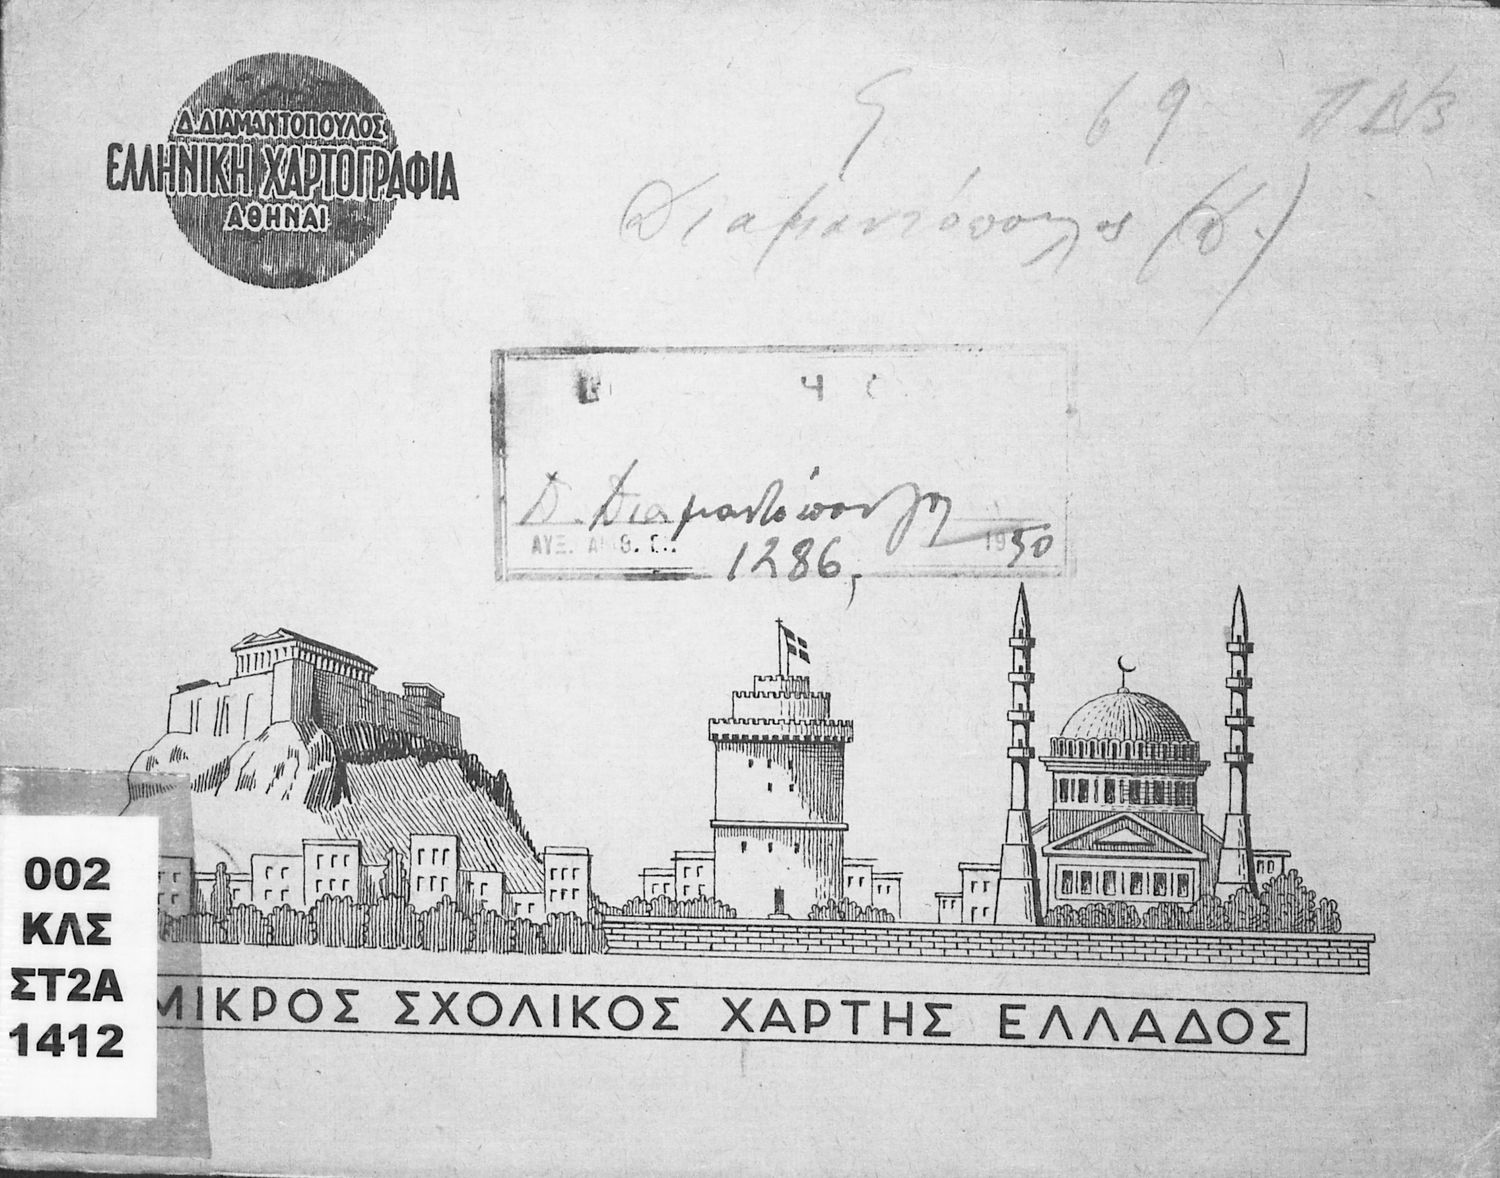 Δ. ΔΙΑΜΑΝΤΟΠΟΥΛΟΣ
ΕΛΛΗΝΙΚΗ ΧΑΡΤΟΓΡΑΦΙΑ
ΑΘΗΝΑΙ
69
Διαμαντόπουλος (Δ.)
Δ. Διαμαντόπουλος
ΑΥΞ. 1286, 1950
002
ΚΛΣ
ΣΤ2Α
1412
ΜΙΚΡΟΣ ΣΧΟΛΙΚΟΣ ΧΑΡΤΗΣ ΕΛΛΑΔΟΣ